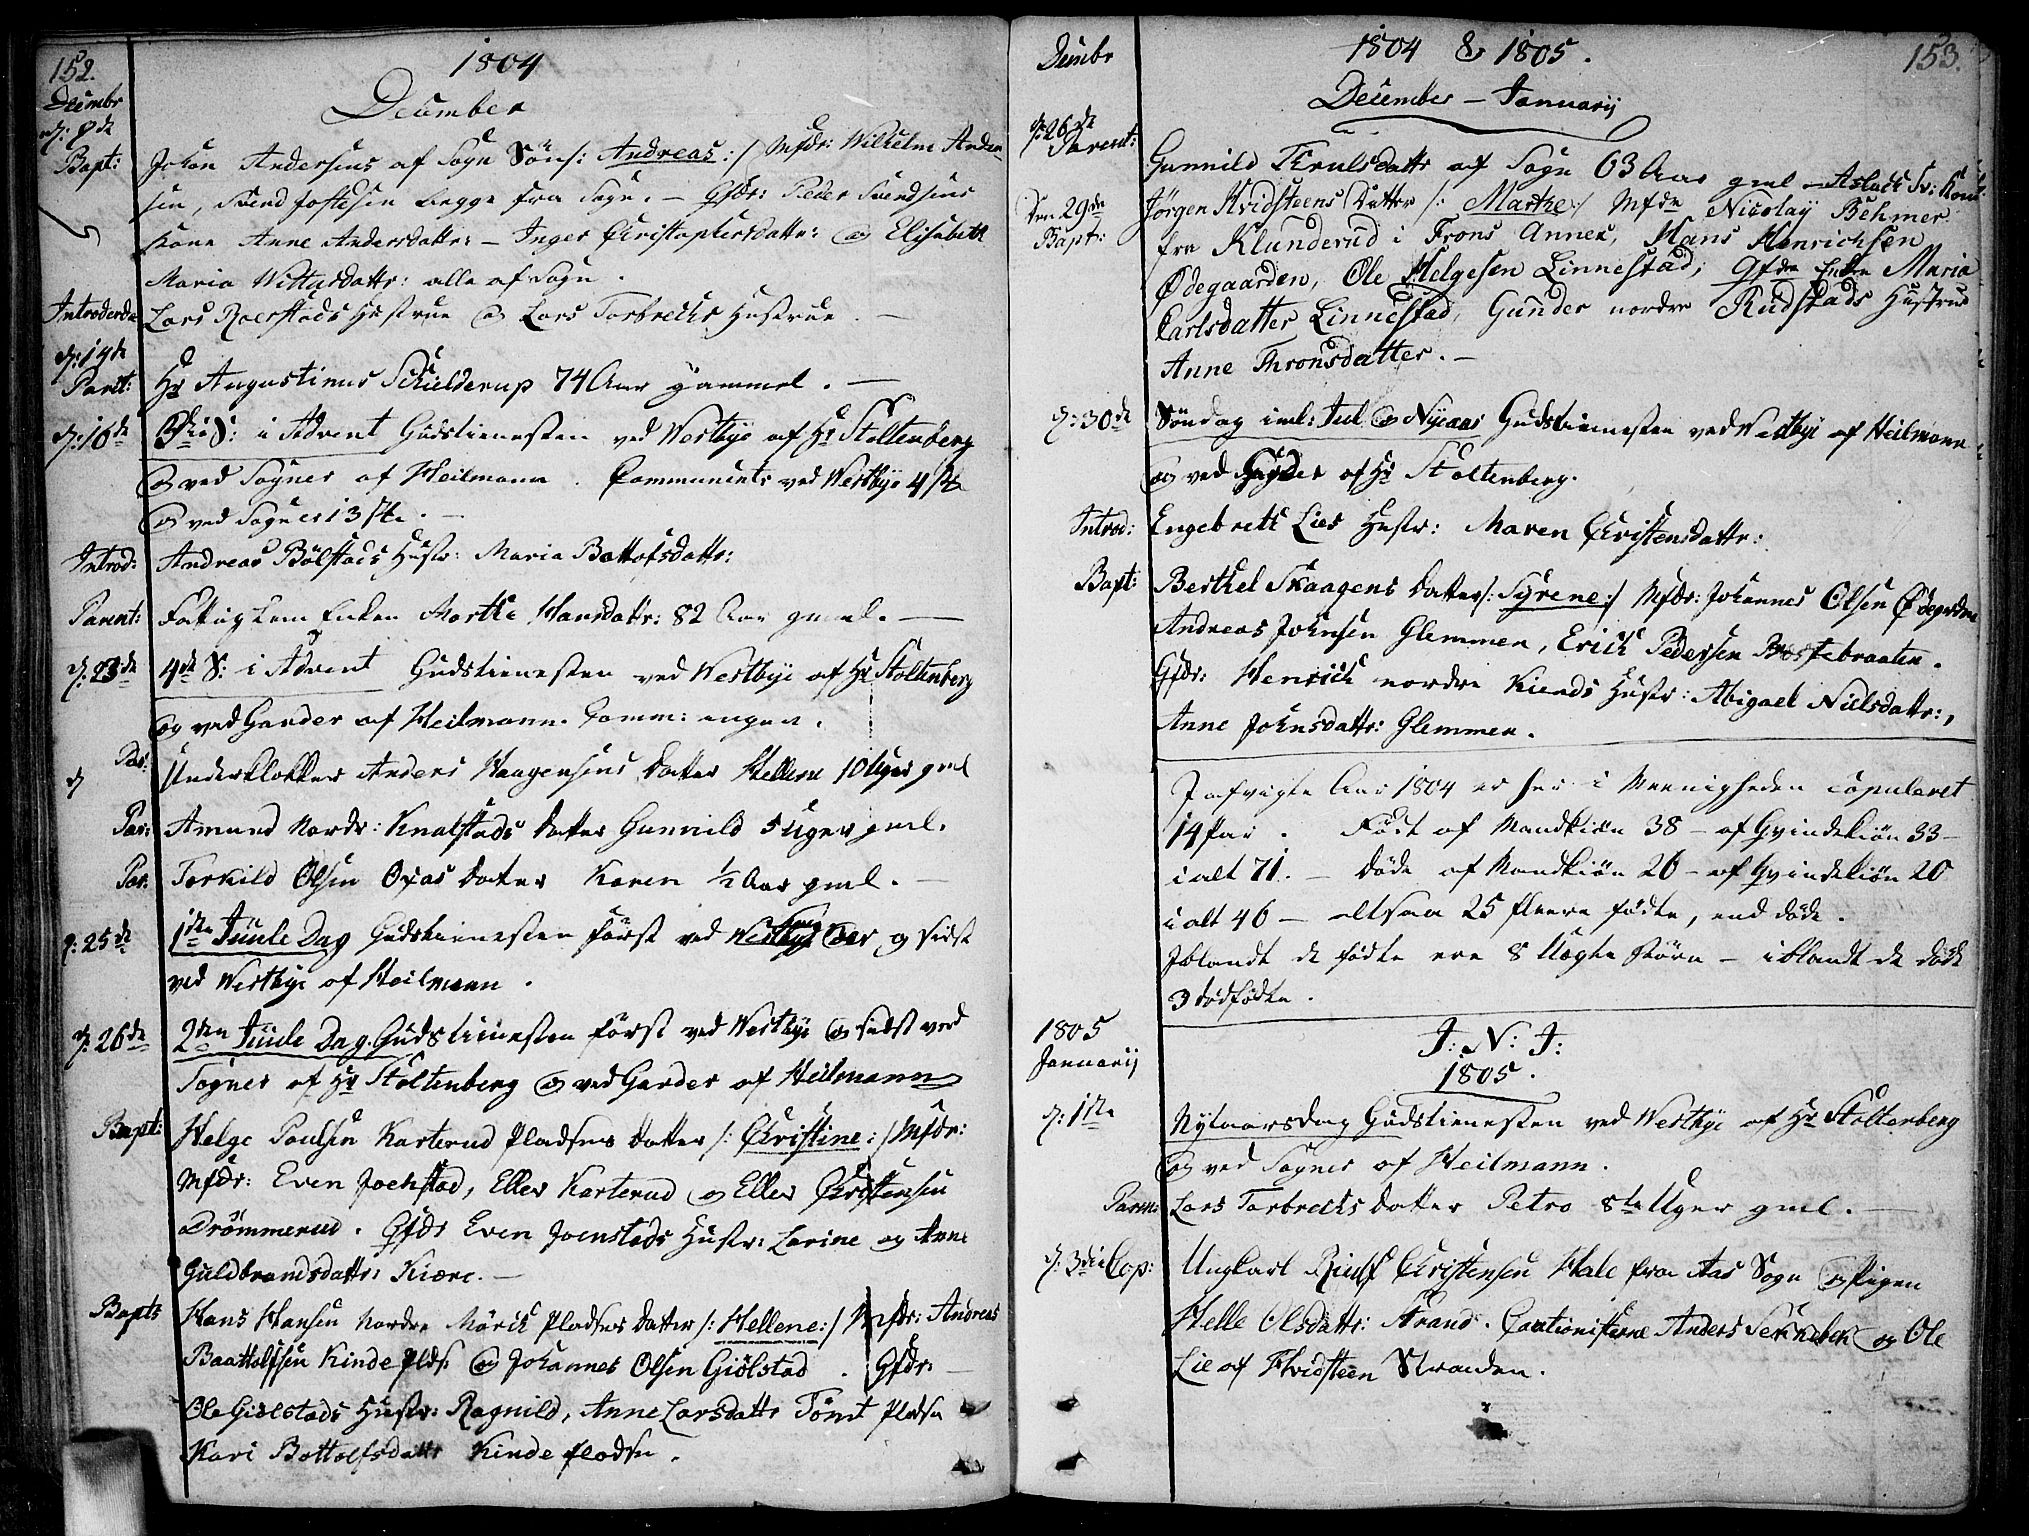 152.
1804
December
Decembr
d: 9de
Bapt: Johan Andersens af Sogn Søn /: Andreas :/ Mfdr: Wilhelm Ander-
sen, Svend Jostesen begge fra Sogn. – Gfdr: Peder Svendsens
Kone Anne Andersdattr: – Inger Christophersdattr: og Elisabeth
Maria Wittusdattr: alle af Sogn.
Introderede Lars Roerstads Hustrue og Lars Torbrechs Hustrue. –
d: 14de
Parent: Hr Augustinus Schielderup 74 Aar gammel. –
d: 16de 3die S: i Advent Gudstienesten ved Westbye af Hr Stoltenberg
og ved Sogner af Heilmann. Communicants ved Westbye 4 St
og ved Sogner 13 Stk. –
Introd: Andreas Bølstads Hustr: Maria Bottofsdattr:
Parent: Fattiglem Enken Marthe Hansdattr: 82 Aar gmel. –
d: 23de 4de S: i Advent Gudstienesten ved Westbye af Hr Stoltenberg
og ved Garder af Heilmann. Comm: ingen.
d Par: Underklokker Anders Haagensens Datter Hellene 10 Uger gml
Par: Amund Nordr: Knalstads Datter Gunnild 5 Uger gml.
Par: Torkild Olsen Oxas Datter Karen 1/2 Aar gmel. –
d: 25de 1ste Juule Dag Gudstienesten først ved Sogner og sidst
ved Westbye af Heilmann.
d: 26de 2den Juule Dag. Gudstienesten først ved Westbye og sidst ved
Sogner af Hr Stoltenberg og ved Garder af Heilmann
Bapt: Helge Poulsen Karterud Pladsens Datter /: Christine :/ Mfdr:
Mfdr: Even Joenstad, Eller Karterud og Eller Christensen
Drømmerud. Gfdr Even Joenstads Hustr: Larine og Anne
Guldbrandsdattr: Kiære. –
Bapt: Hans Hansen Nordre Mørck Pladsens Datter /: Hellene :/ Mfdr: Andreas
Baattolfsen Kinde Plds: og Johannes Olsen Giølstad. Gfdr: –
Ole Giølstads Hustr: Ragnild, Anne Larsdattr Tømt Pladsen
Kari Bottolfsdattr Kinde Pladsen.
153.
Decembr
1804 & 1805.
December – Januarij
d: 26de
Parent: Gunnild Truulsdattr af Sogn 63 Aar gml – Aslach Sv: Kone
Den 29de
Bapt: Jørgen Hvidsteens Datter /: Marthe :/ Mfdr Nicolay Behmer
fra Klunderud i Frons Annex, Hans Henrichsen
Ødegaarden, Ole Helgesen Linnestad; Gfdr Enken Maria
Carlsdatter Linnestad, Gunder nordre Rudstads Hustrue
Anne Thronsdatter. –
d: 30de Søndag iml: Jul og Nyeaar Gudstienesten ved Westbye af Heilmann
og ved Garder af Hr Stoltenberg.
Introd: Engebreth Lies Hustr: Maren Christensdattr:
Bapt: Berthel Skaagens Datter /: Syrene :/ Mfdr: Johannes Olsen Ødegrdn
Andreas Johnsen Glemmen, Erich Pedersen Brostebraaten.
Gfdr: Henrich nordre Kiends Hustr: Abigael Nielsdattr:,
Anne Johnsdattr: Glemmen.
I afvigte Aar 1804 er her i Menigheden copuleret
14 Par. Født af Mandkiøn 38 – af Qvindekiøn 33 –
i alt 71. – Døde af Mandkiøn 26 – af Qvindekiøn 20
i alt 46 – altsaa 25 fleere fødte, end døde.
Iblandt de fødte ere 8 Uægte Børn – iblandt de døde
3 dødfødte.
1805
Januarij
J: N: J:
1805.
d: 1ste Nytaarsdag Gudstienesten ved Westbye af Hr Stoltenberg
og ved Sogner af Heilmann.
Paren: Lars Torbrechs Datter Petro 8te Uger gml. –
d: 3die Cop: Ungkarl Christensen Hale fra Aas Sogn og Pigen
Helle Olsdattr: Strand. Cautionisterne Anders Sennebek og Ole
Lie af Hvidsteen Stranden.